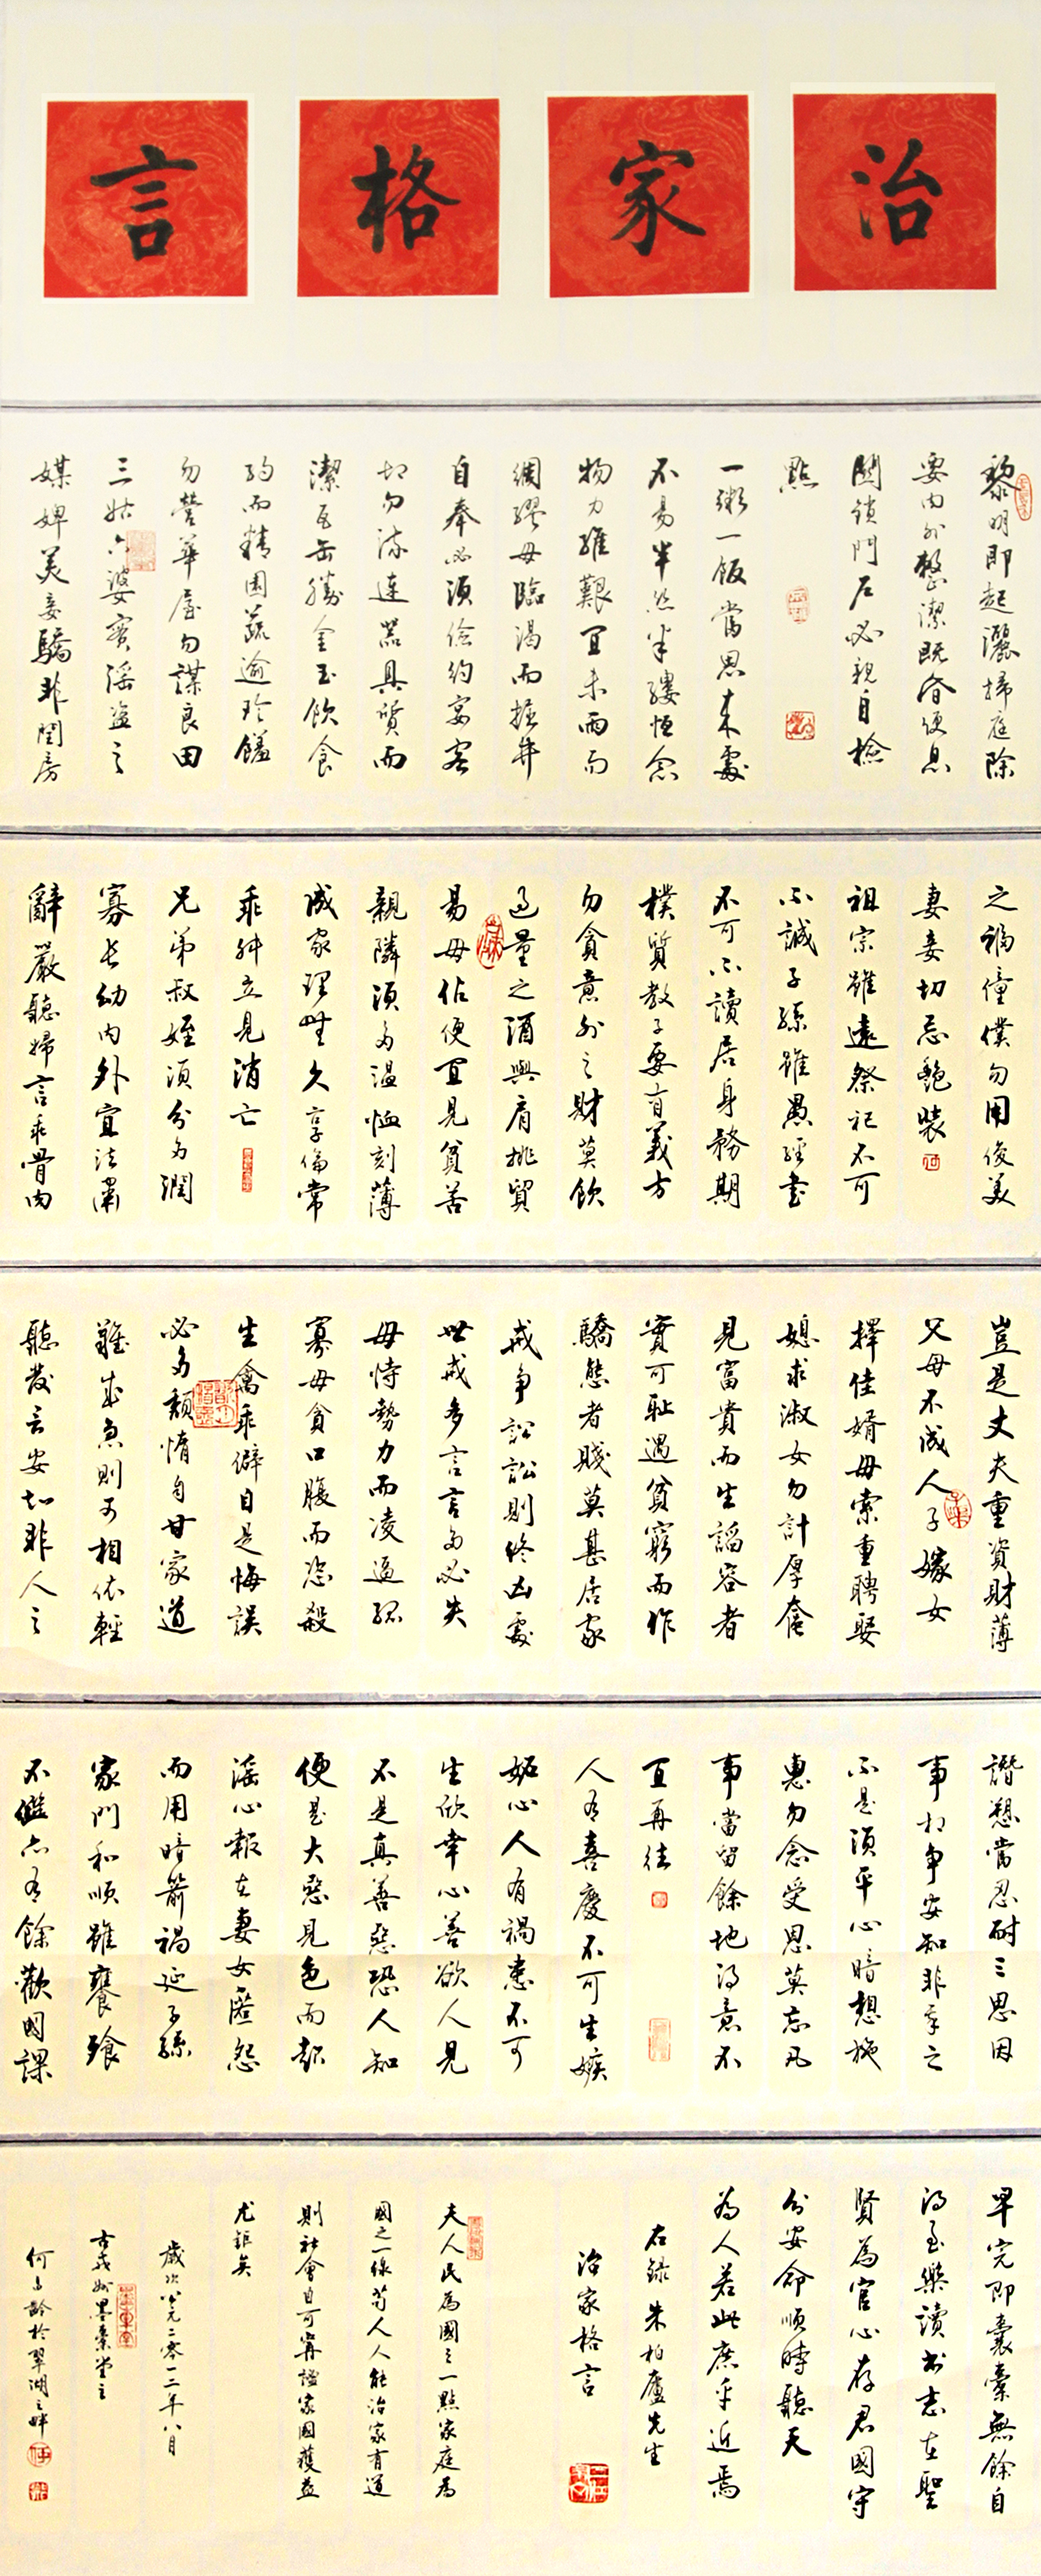 治家格言
黎明即起灑掃庭除
要內外整潔既昏便息
關鎖門戶必親自檢
點
一粥一飯當思來處
不易半絲半縷恒念
物力維艱宜未雨而
綢繆毋臨渴而掘井
自奉必須儉約宴客
切勿流連器具質而
潔瓦缶勝金玉飲食
約而精園蔬逾珍饈
勿營華屋勿謀良田
三姑六婆實淫盜之
媒婢美妾驕非閨房
之禍僮僕勿用俊美
妻妾切忌艷裝
祖宗雖遠祭祀不可
不誠子孫雖愚經書
不可不讀居身務期
樸質教子要有義方
勿貪意外之財莫飲
過量之酒與肩挑貿
易毋佔便宜見貧苦
親隣須多溫恤刻薄
成家理無久享倫常
乖舛立見消亡
兄弟叔姪須分多潤
寡長幼內外宜法肅
辭嚴聽婦言乖骨肉
豈是丈夫重資財薄
父母不成人子嫁女
擇佳婿毋索重聘娶
媳求淑女勿計厚奩
見富貴而生諂容者
實可恥遇貧窮而作
驕態者賤莫甚居家
戒爭訟訟則終凶處
世戒多言言多必失
毋恃勢力而凌逼孤
寡毋貪口腹而恣殺
生禽乖僻自是悔誤
必多頹惰自甘家道
難成急則可相依輕
聽發言安知非人之
譖愬當忍耐三思因
事相爭安知非我之
不是須平心暗想施
惠勿念受恩莫忘凡
事當留餘地得意不
宜再往
人有喜慶不可生嫉
妬心人有禍患不可
生欣幸心善欲人見
不是真善惡恐人知
便是大惡見色而起
淫心報在妻女匿怨
而用暗箭禍延子孫
家門和順雖饔飧
不繼亦有餘歡國課
早完即囊橐無餘自
得至樂讀書志在聖
賢為官心存君國守
分安命順時聽天
為人若此庶乎近焉
右錄朱柏廬先生
治家格言
夫人民為國之一點家庭為
國之一線苟人人能治家有道
則社會自可寧謐家國獲益
尤鉅矣
歲次公元二零一二年八月
古戎州墨橐堂主
何昌齡於翠湖之畔